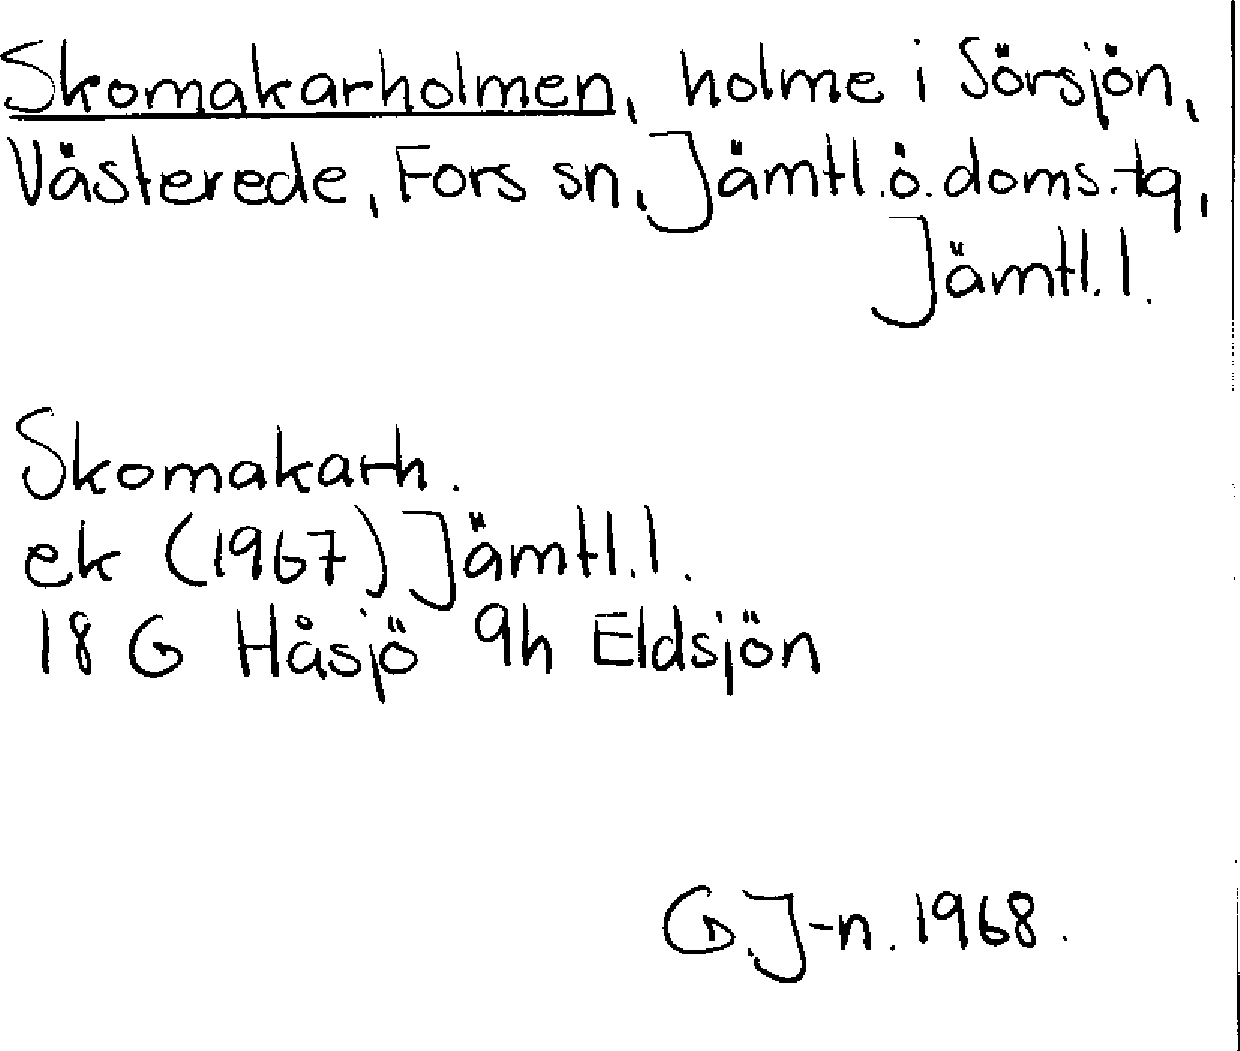 Skomakarholmen, holme i Sörsjön,
Västerede, Fors sn, Jämtl.ö.doms.tg,
Jämtl.l.
Skomakarh.
ek (1967) Jämtl.l.
18 G Håsjö 9h Eldsjön
G.J-n. 1968.